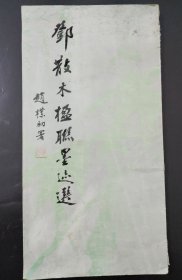 鄧散木楹聯墨迹選
趙樸初署